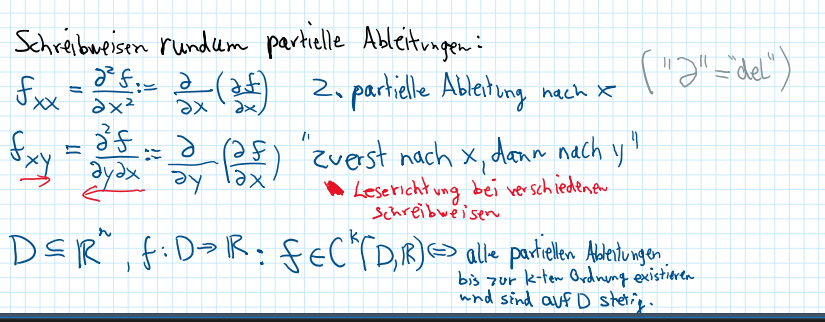 Schreibweisen rundum partielle Ableitungen:
f_xx = ∂²f/∂x² := ∂/∂x (∂f/∂x) 2. partielle Ableitung nach x ("∂" = "del")
f_xy = ∂²f/∂y∂x := ∂/∂y (∂f/∂x) "zuerst nach x, dann nach y"
Leserichtung bei verschiedenen
Schreibweisen
D ⊆ ℝⁿ, f: D → ℝ: f ∈ C^k(D, ℝ) ⇔ alle partiellen Ableitungen
bis zur k-ten Ordnung existieren
und sind auf D stetig.